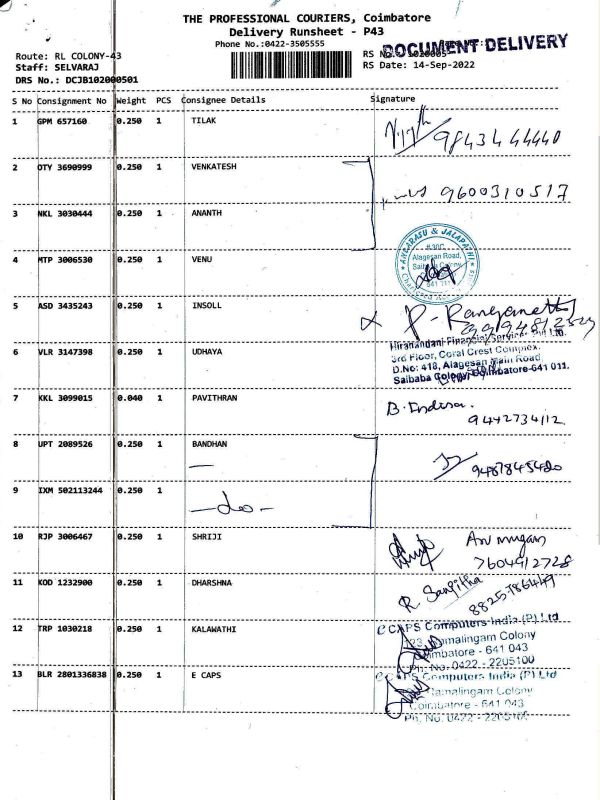 THE PROFESSIONAL COURIERS, Coimbatore
Delivery Runsheet - P43
Phone No.:0422-3505555
DOCUMENT DELIVERY
Route: RL COLONY-43
RS No
Staff: SELVARAJ
RS Date: 14-Sep-2022
DRS No.: DCJB102000501
S No Consignment No Weight PCS Consignee Details Signature
1 GPM 657160 0.250 1 TILAK
9843444440
2 OTY 3690999 0.250 1 VENKATESH
9600310517
3 NKL 3030444 0.250 1 ANANTH
ANBARASU & JALAPATHI
4 MTP 3006530 0.250 1 VENU
Alagesan Road,
5 ASD 3435243 0.250 1 INSOLL
Hiranandani Financial Services Pvt Ltd.
3rd Floor, Coral Crest Complex.
6 VLR 3147398 0.250 1 UDHAYA
D.No: 418, Alagesan Main Road
Saibaba Colony, Coimbatore-641 011.
7 KKL 3099015 0.040 1 PAVITHRAN
B. Indira.
9442734112
8 UPT 2089526 0.250 1 BANDHAN
9487845420
9 IXM 502113244 0.250 1
-do-
10 RJP 3006467 0.250 1 SHRIJI
Arumugam
7604912728
11 KOD 1232900 0.250 1 DHARSHNA
R. Sangitha
8825786449
12 TRP 1030218 0.250 1 KALAWATHI
CAPS Computers India (P) Ltd
Ramalingam Colony
Coimbatore - 641 043
Ph. No. 0422 - 2205100
13 BLR 2801336838 0.250 1 E CAPS
CAPS Computers India (P) Ltd
Ramalingam Colony
Coimbatore - 641 043
Ph. No. 0422 - 2205100